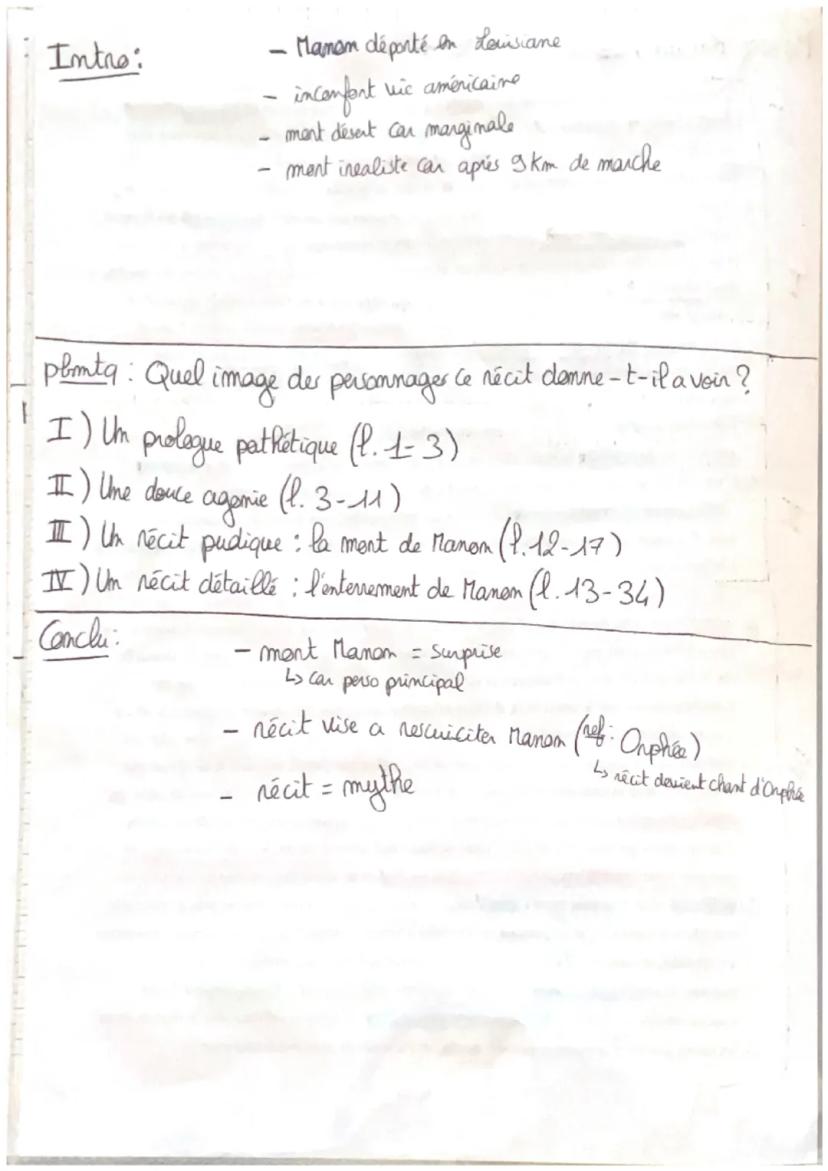 Intro:
- Manon déporté en Louisiane
- inconfort vie américaine
- mort désert car marginale
- mort irealiste car après 9 km de marche
pbmtq : Quel image des personnages ce récit donne-t-il a voir ?
I) Un prologue pathétique (l. 1-3)
II) Une douce agonie (l. 3-11)
III) Un récit pudique : la mort de Manon (l. 12-17)
IV) Un récit détaillé : l'enterrement de Manon (l. 13-34)
Conclu:
- mort Manon = surprise
↳ car perso principal
- récit vise a resuciciter Manon (ref : Orphée)
↳ récit devient chant d'Orphée
- récit = mythe